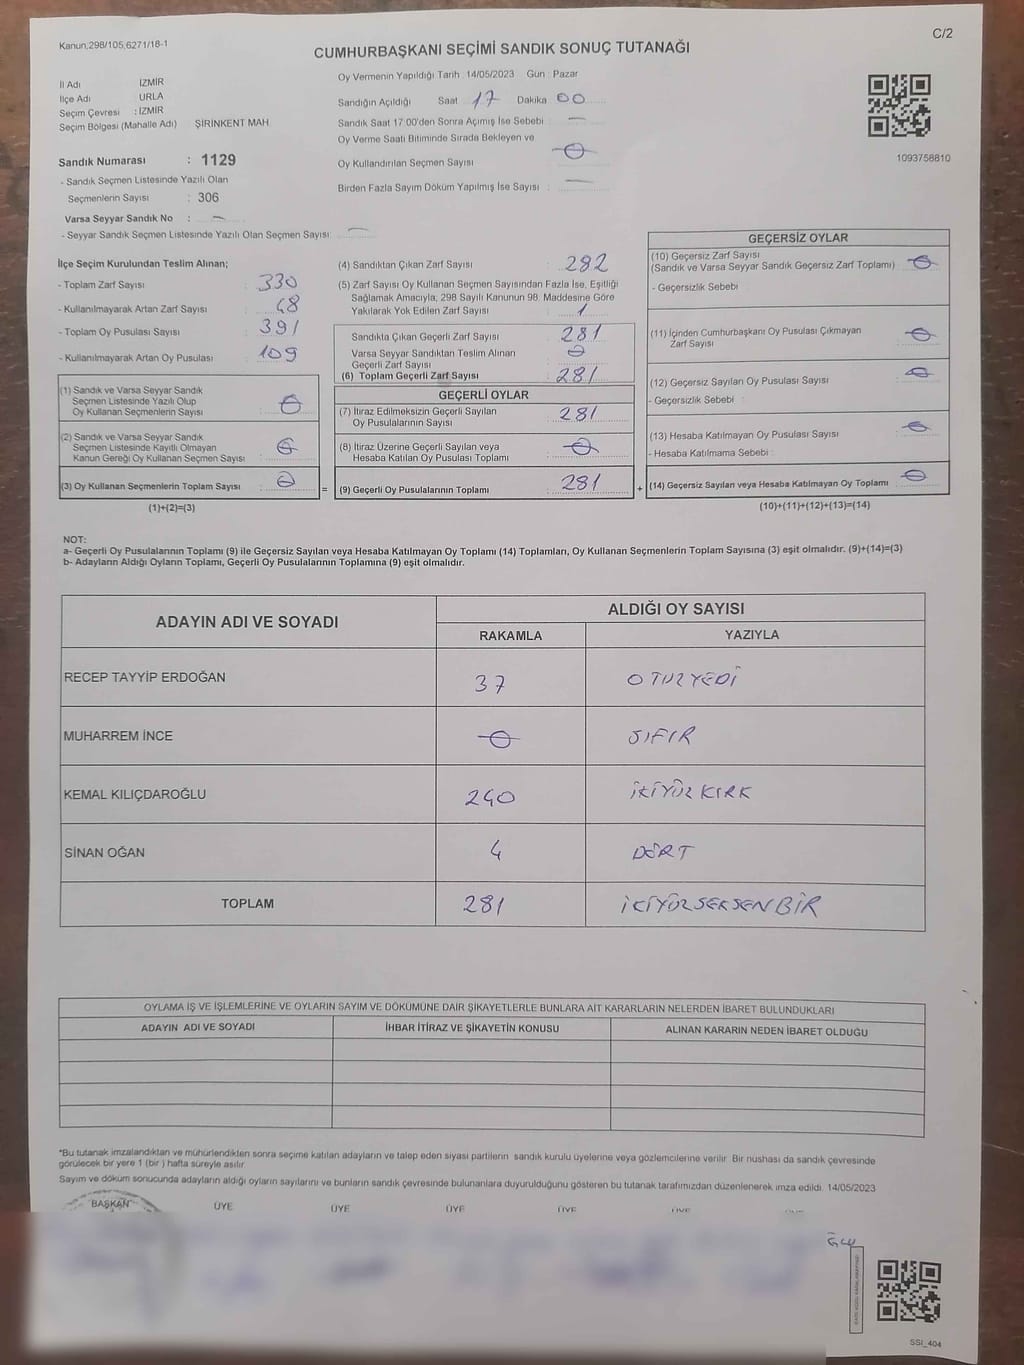 Kanun;298/105,6271/18-1
C/2
CUMHURBAŞKANI SEÇİMİ SANDIK SONUÇ TUTANAĞI
İl Adı İZMİR
İlçe Adı URLA
Seçim Çevresi : İZMİR
Seçim Bölgesi (Mahalle Adı) ŞİRİNKENT MAH.
Sandık Numarası : 1129
- Sandık Seçmen Listesinde Yazılı Olan
Seçmenlerin Sayısı : 306
Varsa Seyyar Sandık No : —
- Seyyar Sandık Seçmen Listesinde Yazılı Olan Seçmen Sayısı: —
Oy Vermenin Yapıldığı Tarih 14/05/2023 Gün : Pazar
Sandığın Açıldığı Saat 17 Dakika 00
Sandık Saat 17:00'den Sonra Açımış İse Sebebi : —
Oy Verme Saati Bitiminde Sırada Bekleyen ve
Oy Kullandırılan Seçmen Sayısı 0
Birden Fazla Sayım Döküm Yapılmış İse Sayısı : —
1093758810
İlçe Seçim Kurulundan Teslim Alınan;
- Toplam Zarf Sayısı : 330
- Kullanılmayarak Artan Zarf Sayısı : 48
- Toplam Oy Pusulası Sayısı : 391
- Kullanılmayarak Artan Oy Pusulası : 109
(1) Sandık ve Varsa Seyyar Sandık
Seçmen Listesinde Yazılı Olup
Oy Kullanan Seçmenlerin Sayısı : 0
(2) Sandık ve Varsa Seyyar Sandık
Seçmen Listesinde Kayıtlı Olmayan
Kanun Gereği Oy Kullanan Seçmen Sayısı : 0
(3) Oy Kullanan Seçmenlerin Toplam Sayısı : 0
(1)+(2)=(3)
(4) Sandıktan Çıkan Zarf Sayısı : 282
(5) Zarf Sayısı Oy Kullanan Seçmen Sayısından Fazla İse, Eşitliği
Sağlamak Amacıyla; 298 Sayılı Kanunun 98. Maddesine Göre
Yakılarak Yok Edilen Zarf Sayısı : 1
Sandıkta Çıkan Geçerli Zarf Sayısı : 281
Varsa Seyyar Sandıktan Teslim Alınan
Geçerli Zarf Sayısı : 0
(6) Toplam Geçerli Zarf Sayısı : 281
GEÇERLİ OYLAR
(7) İtiraz Edilmeksizin Geçerli Sayılan
Oy Pusulalarının Sayısı : 281
(8) İtiraz Üzerine Geçerli Sayılan veya
Hesaba Katılan Oy Pusulası Toplamı : 0
= (9) Geçerli Oy Pusulalarının Toplamı : 281
GEÇERSİZ OYLAR
(10) Geçersiz Zarf Sayısı
(Sandık ve Varsa Seyyar Sandık Geçersiz Zarf Toplamı) : 0
- Geçersizlik Sebebi
(11) İçinden Cumhurbaşkanı Oy Pusulası Çıkmayan
Zarf Sayısı : 0
(12) Geçersiz Sayılan Oy Pusulası Sayısı : 0
- Geçersizlik Sebebi :
(13) Hesaba Katılmayan Oy Pusulası Sayısı : 0
- Hesaba Katılmama Sebebi :
+ (14) Geçersiz Sayılan veya Hesaba Katılmayan Oy Toplamı : 0
(10)+(11)+(12)+(13)=(14)
NOT:
a- Geçerli Oy Pusulalarının Toplamı (9) ile Geçersiz Sayılan veya Hesaba Katılmayan Oy Toplamı (14) Toplamları, Oy Kullanan Seçmenlerin Toplam Sayısına (3) eşit olmalıdır. (9)+(14)=(3)
b- Adayların Aldığı Oyların Toplamı, Geçerli Oy Pusulalarının Toplamına (9) eşit olmalıdır.
ADAYIN ADI VE SOYADI ALDIĞI OY SAYISI
RAKAMLA YAZIYLA
RECEP TAYYİP ERDOĞAN 37 OTUZYEDİ
MUHARREM İNCE 0 SIFIR
KEMAL KILIÇDAROĞLU 240 İKİYÜZ KIRK
SİNAN OĞAN 4 DÖRT
TOPLAM 281 İKİYÜZSEKSENBİR
OYLAMA İŞ VE İŞLEMLERİNE VE OYLARIN SAYIM VE DÖKÜMÜNE DAİR ŞİKAYETLERLE BUNLARA AİT KARARLARIN NELERDEN İBARET BULUNDUKLARI
ADAYIN ADI VE SOYADI İHBAR İTİRAZ VE ŞİKAYETİN KONUSU ALINAN KARARIN NEDEN İBARET OLDUĞU
*Bu tutanak imzalandıktan ve mühürlendikten sonra seçime katılan adayların ve talep eden siyası partilerin sandık kurulu üyelerine veya gözlemcilerine verilir. Bir nushası da sandık çevresinde
görülecek bir yere 1 (bir ) hafta süreyle asılır.
Sayım ve döküm sonucunda adayların aldığı oyların sayılarını ve bunların sandık çevresinde bulunanlara duyurulduğunu gösteren bu tutanak tarafımızdan düzenlenerek imza edildi. 14/05/2023
BAŞKAN ÜYE ÜYE ÜYE ÜYE ÜYE ÜYE
SSI_404